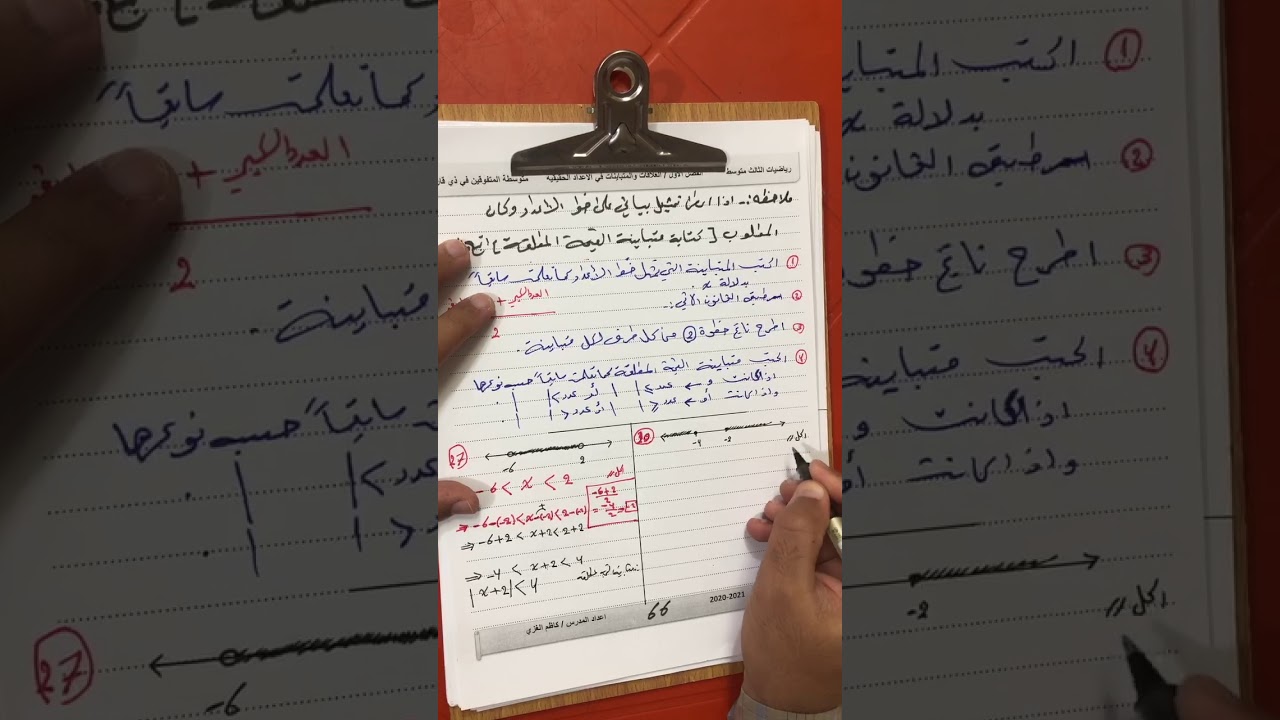 رياضيات الثالث متوسط الفصل الاول / العلاقات والمتباينات في الاعداد الحقيقية متوسطة المتفوقين في ذي قار
ملاحظة :- اذا تمثيل بياني على خط الاعداد وكان
المطلوب [ كتابة متباينة القيمة المطلقة ] اتبع
① اكتب المتباينة التي تمثل خط الاعداد كما تعلمت سابقاً
بدلالة x
② القانون الآتي :-
العدد الكبير +
2
③ اطرح ناتج خطوة ② من كل طرف لكل متباينة .
④ اكتب متباينة القيمة المطلقة كما تعلمت سابقاً حسب نوعها
اذا كانت و ← عدد > | |
واذا كانت أو ← عدد ≤ | |
27
-6 2
الحل //
-6 < x < 2
-6+2
2
= -4
2 = -2
⇒ -6-(-2) < x-(-2) < 2-(-2)
⇒ -6+2 < x+2 < 2+2
⇒ -4 < x+2 < 4
|x+2| < 4
-4 -2
الحل //
اعداد المدرس / كاظم الغزي
66
2020-2021